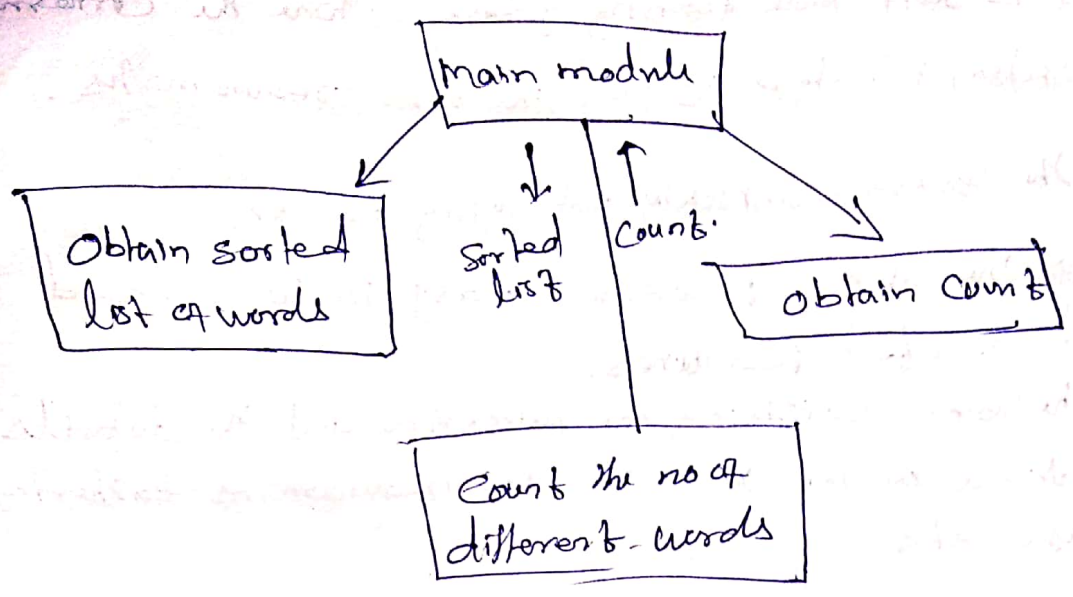 Main module
Obtain sorted
list of words
Sorted
list
Count.
obtain Count
Count the no of
different words